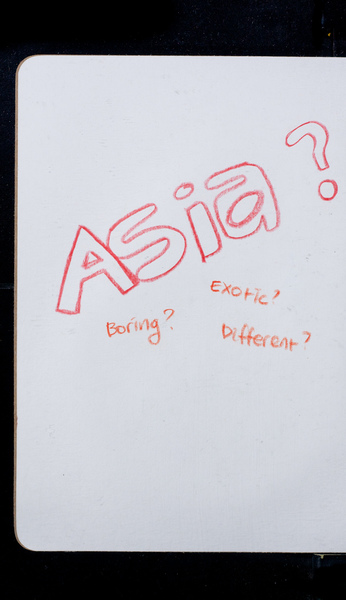 Asia?
Exotic?
Boring?
Different?